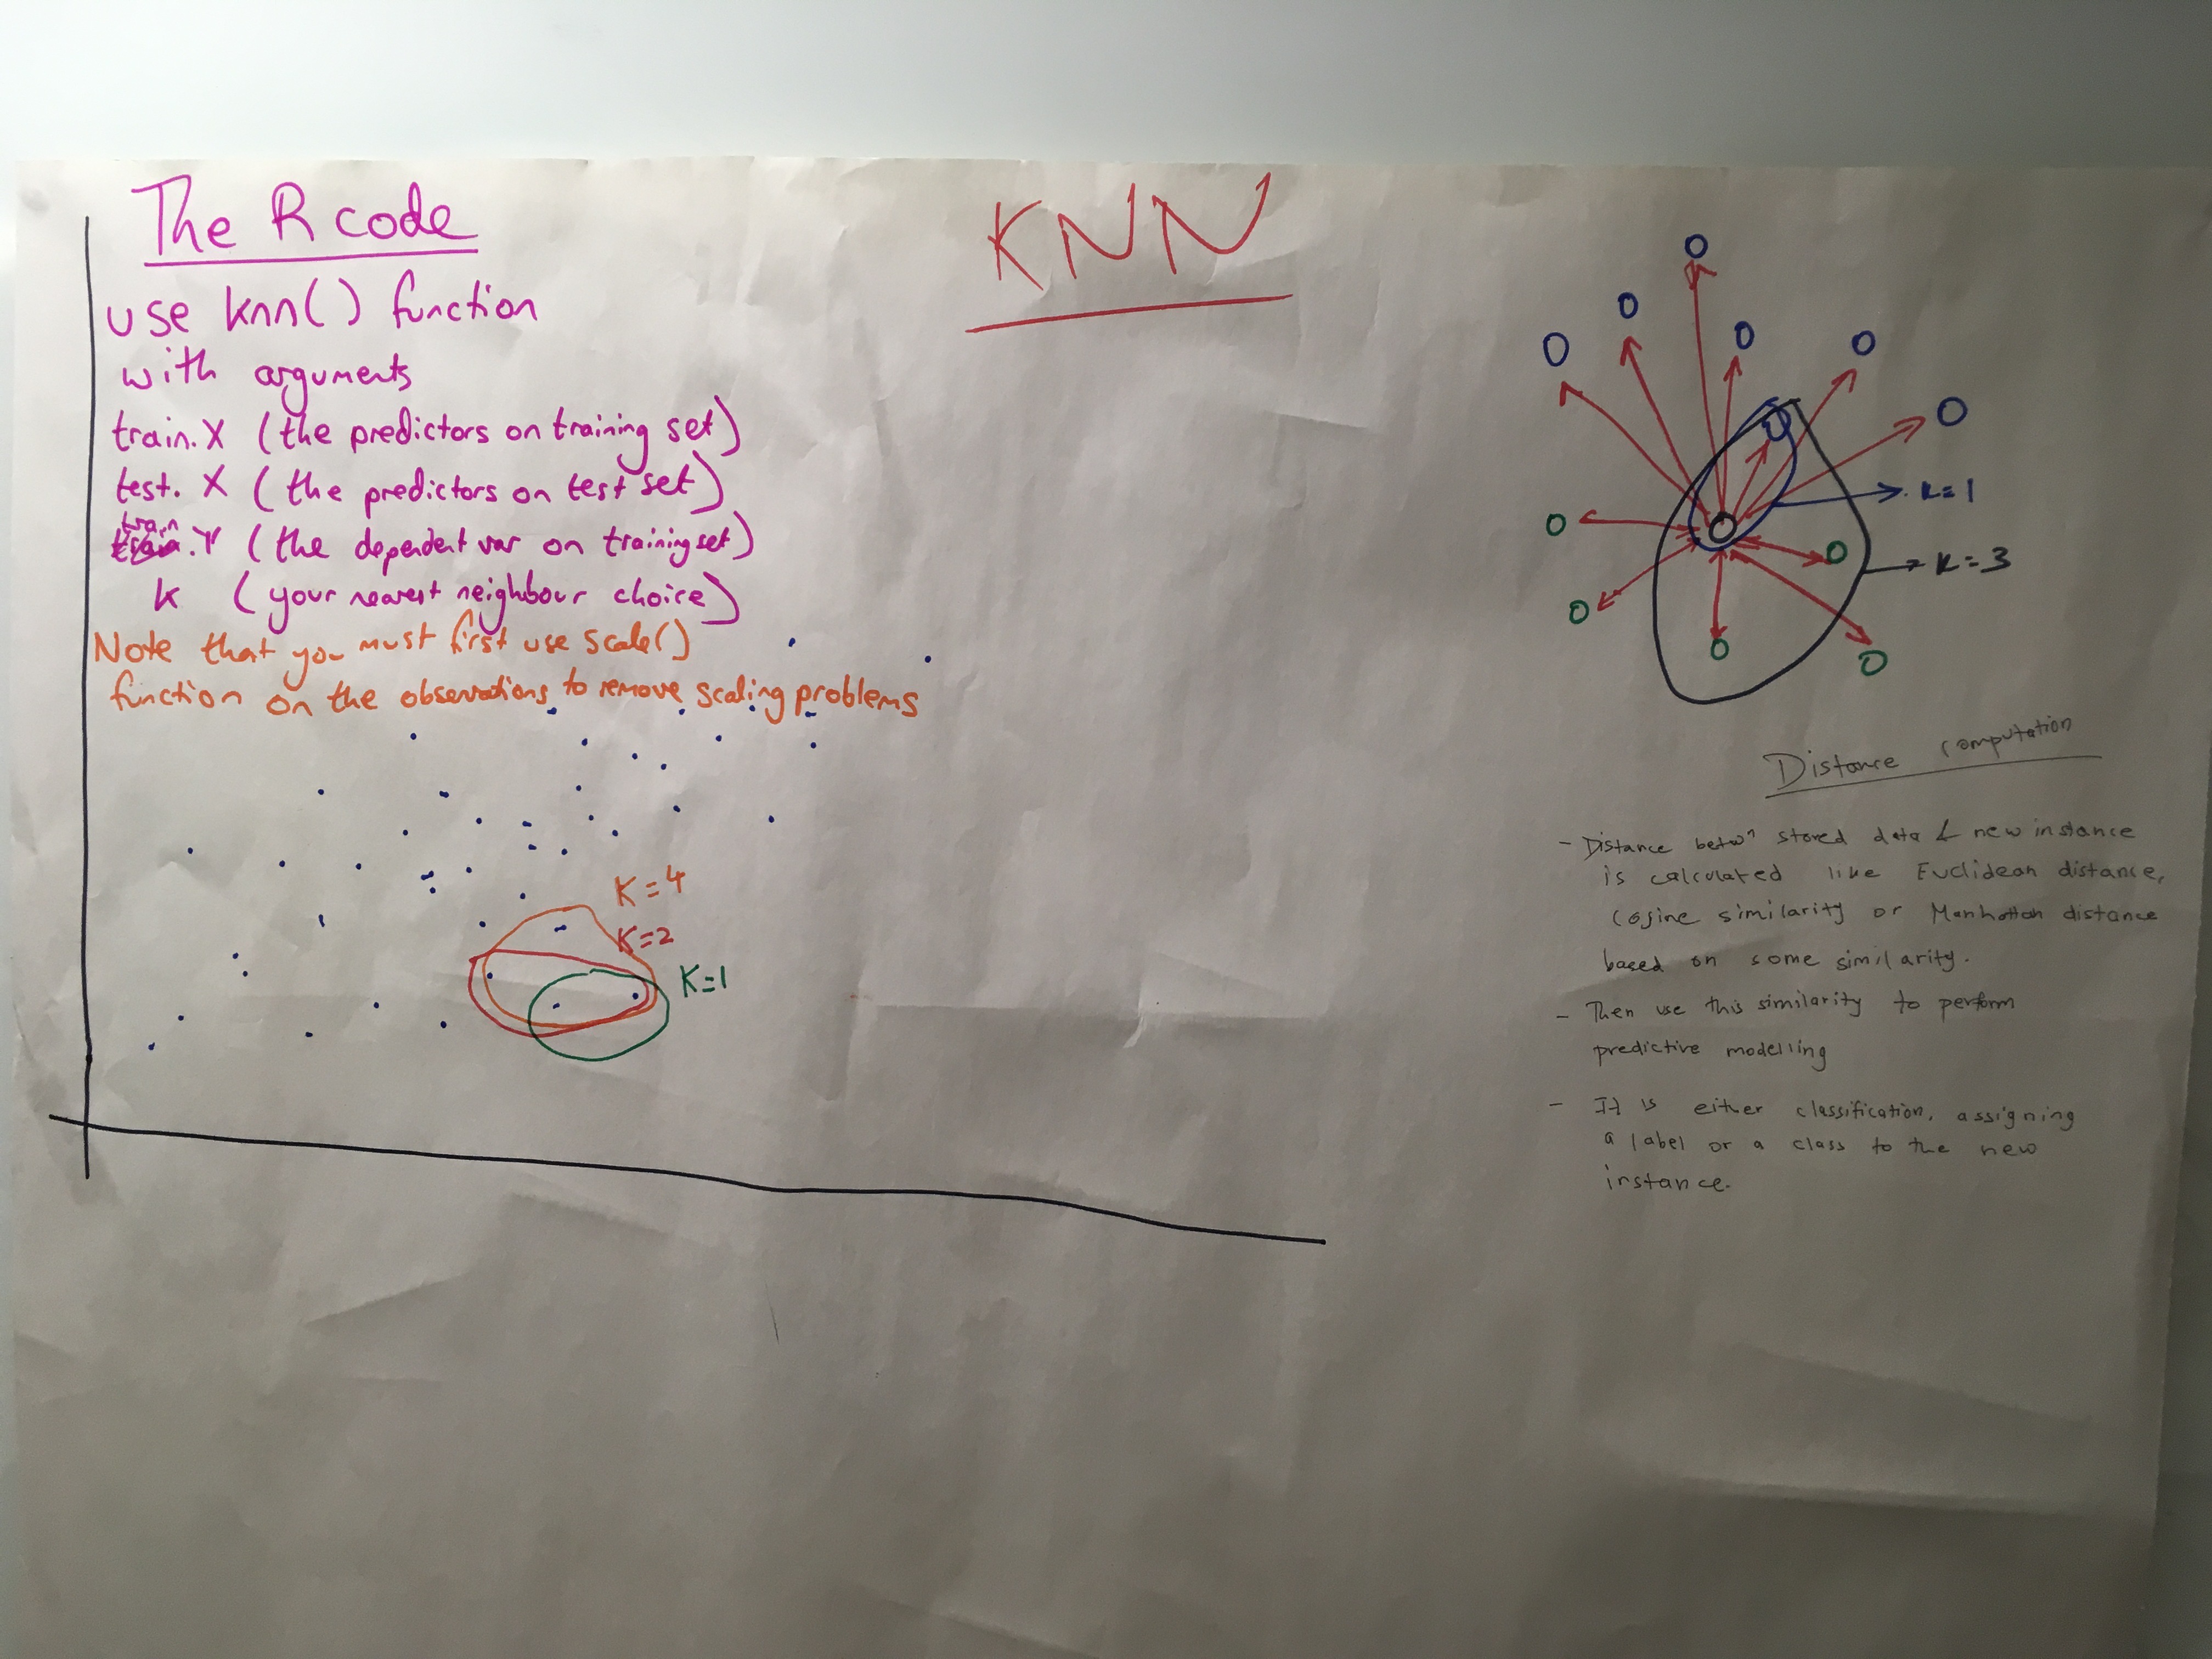 The R code
use knn() function
with arguments
train.X (the predictors on training set)
test.X (the predictors on test set)
train.Y (the dependent var on training set)
k (your nearest neighbour choice)
Note that you must first use scale()
function on the observations to remove scaling problems
K=4
K=2
K=1
KNN
k=1
k=3
Distance computation
- Distance betwⁿ stored data & new instance
is calculated like Euclidean distance,
Cosine similarity or Manhattan distance
based on some similarity.
- Then use this similarity to perform
predictive modelling
- It is either classification, assigning
a label or a class to the new
instance.